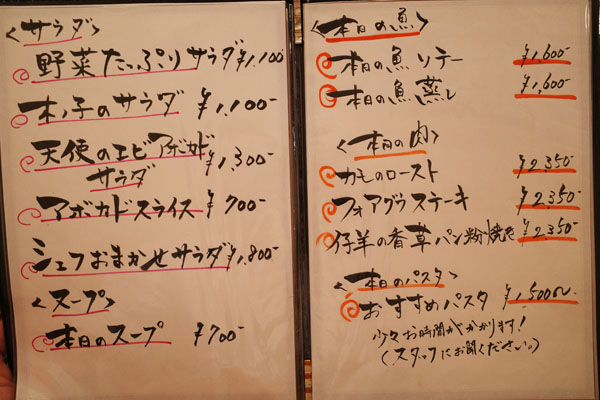 <サラダ>
野菜たっぷりサラダ ¥1,100
木ノ子のサラダ ¥1,100-
天使のエビアボカド
サラダ ¥1,300-
アボカドスライス ¥700-
シェフおまかせサラダ ¥1,800-
<スープ>
本日のスープ ¥700-
<本日の魚>
本日の魚ソテー ¥1,600-
本日の魚蒸し ¥1,600-
<本日の肉>
カモのロースト ¥2,350-
フォアグラステーキ ¥2,350-
仔羊の香草パン粉焼き ¥2,350-
<本日のパスタ>
おすすめパスタ ¥1,500〜
少々お時間がかかります!
(スタッフにお聞きください。)